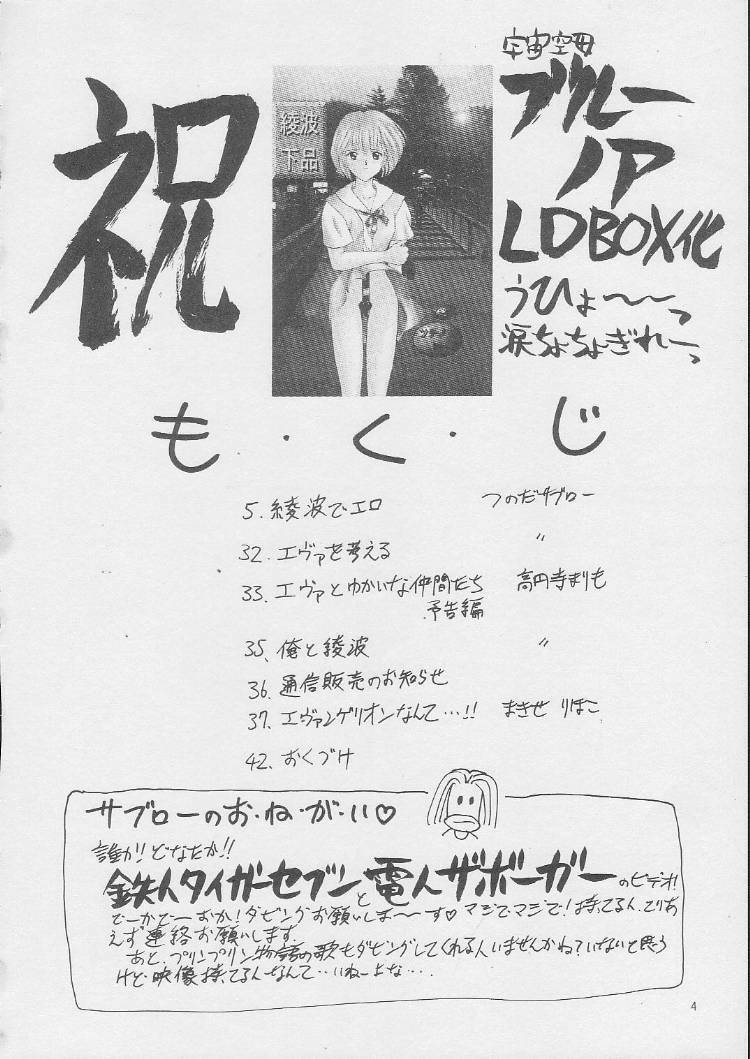 祝
綾波
下品
宇宙空母
ブルー
ノア
LDBOX化
うひょ〜〜っ
涙ちょちょぎれーっ
も・く・じ
5. 綾波でエロ つのだサブロー
32. エヴァを考える 〃
33. エヴァとゆかいな仲間たち 高円寺まりも
予告編
35. 俺と綾波 〃
36. 通信販売のお知らせ
37. エヴァンゲリオンなんて…!! まきせ りほこ
42. おくづけ
サブローのお・ね・が・い♡
誰か!どなたか!!
鉄人タイガーセブンと電人ザボーガーのビデオ!
どーかどーおか!ダビングお願いしま〜〜す♡マジでマジで!持ってる人、とりあ
えず連絡お願いします
あと、プリンプリン物語の歌もダビングしてくれる人いませんかね?いないと思う
けど映像持ってる人なんて…いねーよな…
4